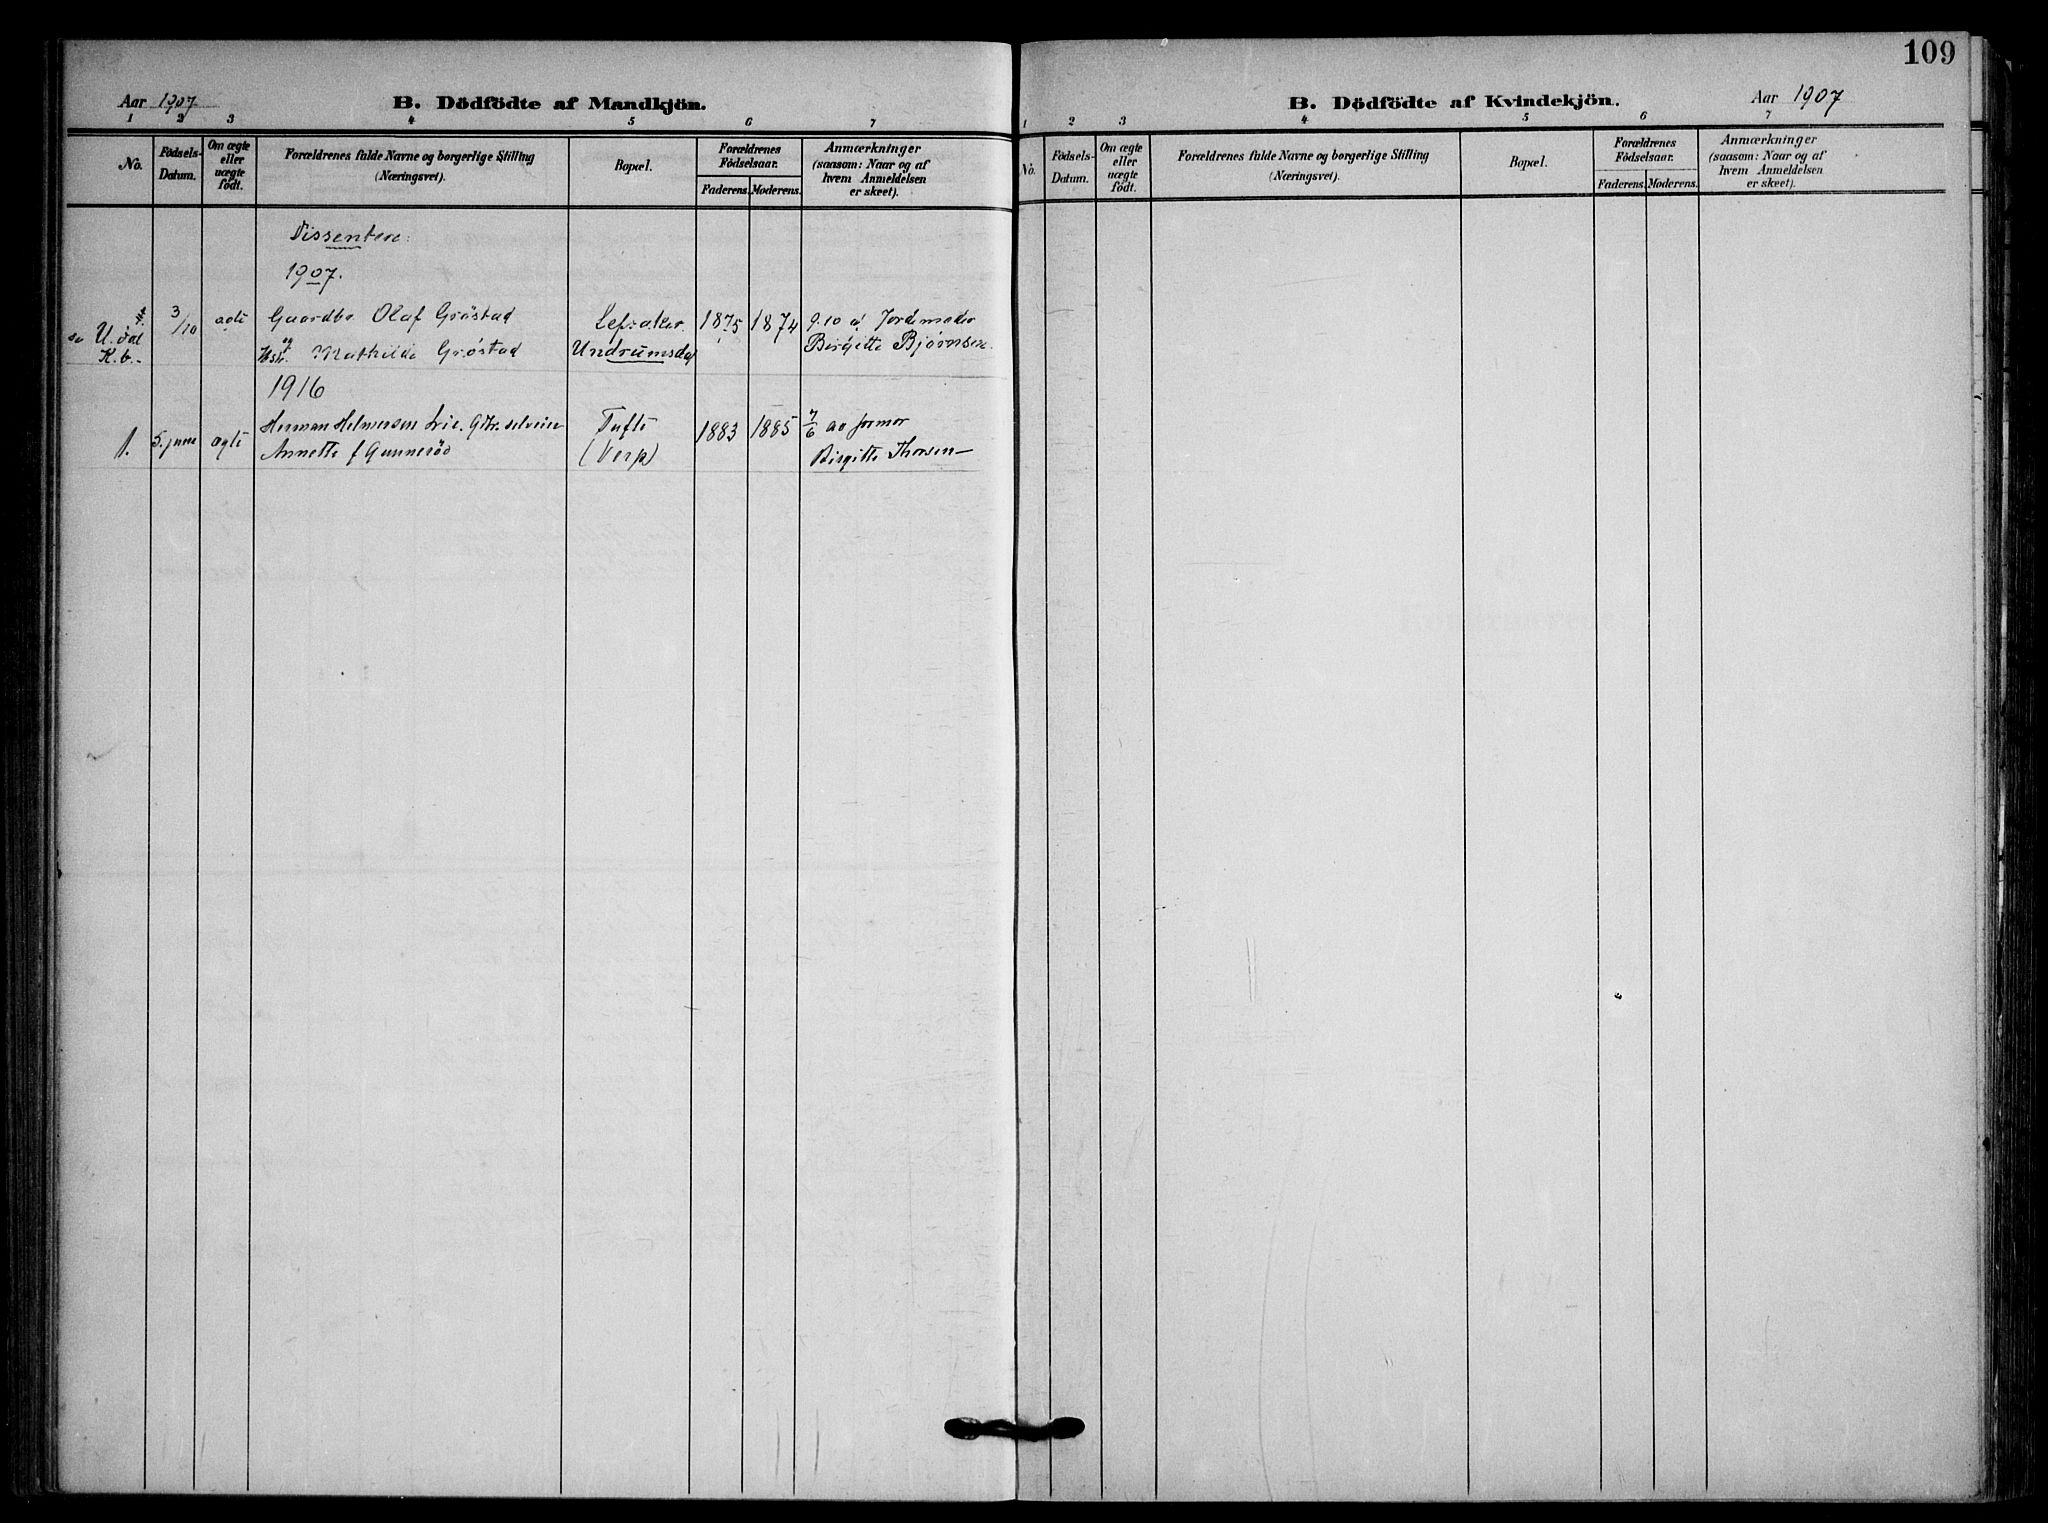 109
Aar 1907
B. Dödfödte af Mandkjön.
1 2 3 4 5 6 7
No.
Födsels-Datum.
Om ægte eller uægte födt.
Forældrenes fulde Navne og borgerlige Stilling
(Næringsvei).
Bopæl.
Forældrenes Födselsaar.
Faderens. Moderens.
Anmærkninger
(saasom: Naar og af
hvem Anmeldelsen
er skeet).
Dissentere:
1907.
se U.dal 3/10 ægte Gaardbr Olaf Grøstad Lefsaker. 1875 1874 9.10 a/ Jordemoder
K.b. og Hstr. Mathilde Grøstad Undrumsdal Birgitte Bjørnsen.
1916
1. 5. june ægte Herman Helmersen Lie. Gbr. selveier Tufte 1883 1885 7/6 av formor
Annette f Gunnerød (Verp) Birgitte Thorsen
B. Dödfödte af Kvindekjön.
Aar 1907
1 2 3 4 5 6 7
No.
Födsels-Datum.
Om ægte eller uægte födt.
Forældrenes fulde Navne og borgerlige Stilling
(Næringsvei).
Bopæl.
Forældrenes Födselsaar.
Faderens. Moderens.
Anmærkninger
(saasom: Naar og af
hvem Anmeldelsen
er skeet).